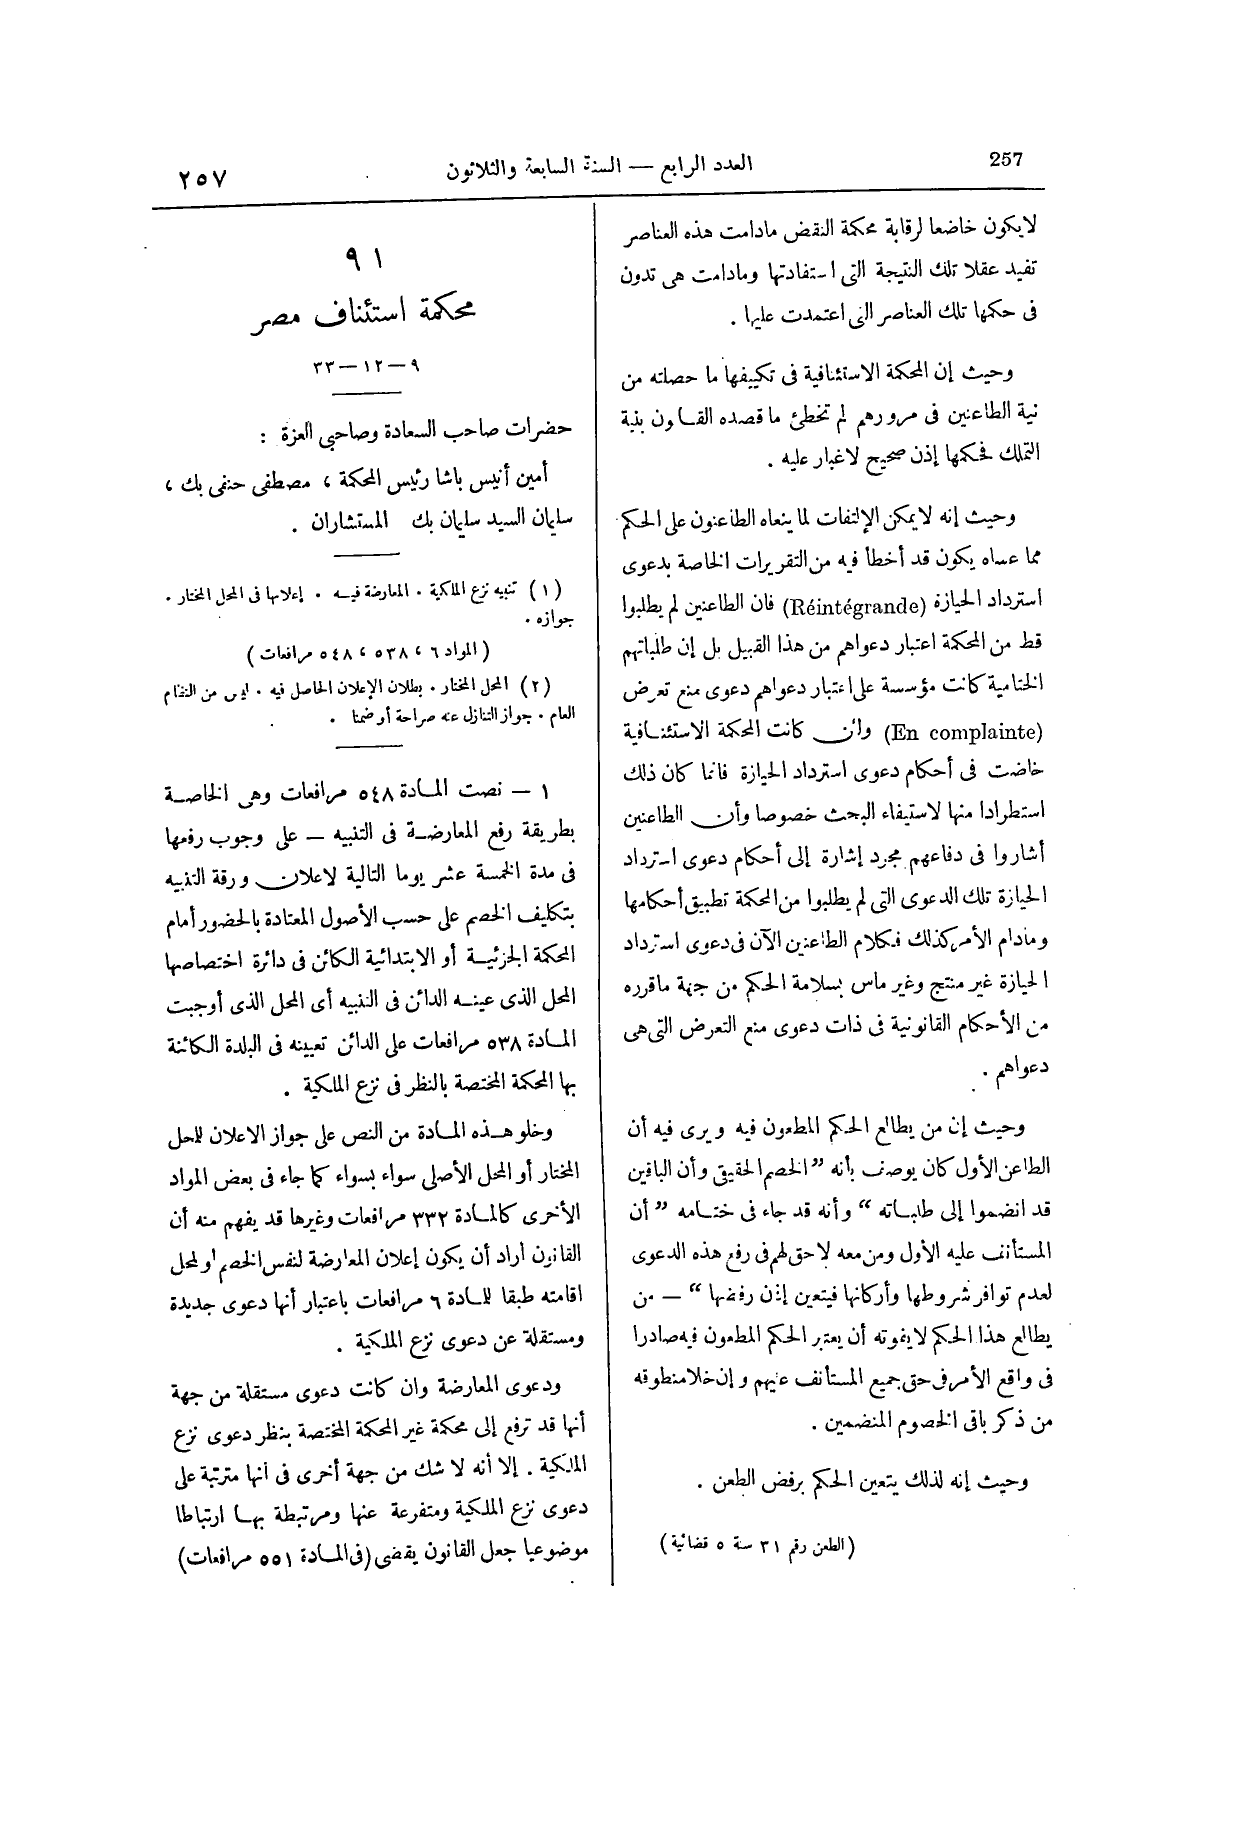 257
العدد الرابع — السنة السابعة والثلاثون
٢٥٧
لايكون خاضعا لرقابة محكمة النقض مادامت هذه العناصر
تفيد عقلا تلك النتيجة التى استفادتها ومادامت هى تدون
فى حكمها تلك العناصر التى اعتمدت عليها .
وحيث إن المحكمة الاستئنافية فى تكييفها ما حصلته من
نية الطاعنين فى مرورهم لم تخطئ ماقصده القانون بنية
التملك فحكمها إذن صحيح لاغبار عليه .
وحيث إنه لايمكن الإلتفات لما ينعاه الطاعنون على الحكم
مما عساه يكون قد أخطأ فيه من التقريرات الخاصة بدعوى
استرداد الحيازة (Réintégrande) فان الطاعنين لم يطلبوا
قط من المحكمة اعتبار دعواهم من هذا القبيل بل إن طلباتهم
الختامية كانت مؤسسة على اعتبار دعواهم دعوى منع تعرض
(En complainte) وان كانت المحكمة الاستئنافية
خاضت فى أحكام دعوى استرداد الحيازة فانما كان ذلك
استطرادا منها لاستيفاء البحث خصوصا وأن الطاعنين
أشاروا فى دفاعهم مجرد إشارة إلى أحكام دعوى استرداد
الحيازة تلك الدعوى التى لم يطلبوا من المحكمة تطبيق أحكامها
ومادام الأمر كذلك فكلام الطاعنين الآن فى دعوى استرداد
الحيازة غير منتج وغير ماس بسلامة الحكم من جهة ماقرره
من الأحكام القانونية فى ذات دعوى منع التعرض التى هى
دعواهم .
وحيث إن من يطالع الحكم المطعون فيه ويرى فيه أن
الطاعن الأول كان يوصف بأنه ”الخصم الحقيقى وأن الباقين
قد انضموا إلى طلباته“ وأنه قد جاء فى ختامه ”أن
المستأنف عليه الأول ومن معه لاحق لهم فى رفع هذه الدعوى
لعدم توافر شروطها وأركانها فيتعين إذن رفضها“ — من
يطالع هذا الحكم لايفوته أن يعتبر الحكم المطعون فيه صادرا
فى واقع الأمر فى حق جميع المستأنف عليهم وإن خلا منطوقه
من ذكر باقى الخصوم المنضمين .
وحيث إنه لذلك يتعين الحكم برفض الطعن .
(الطعن رقم ٣١ سنة ٥ قضائية)
٩١
محكمة استئناف مصر
٩ — ١٢ — ٣٣
حضرات صاحب السعادة وصاحبى العزة :
أمين أنيس باشا رئيس المحكمة ، مصطفى حنفى بك ،
سليمان السيد سليمان بك المستشاران .
(١) تنبيه نزع الملكية . المعارضة فيه . إعلانها فى المحل المختار .
جوازه .
(المواد ٦ ، ٥٣٨ ، ٥٤٨ مرافعات)
(٢) المحل المختار . بطلان الإعلان الحاصل فيه . ليس من النظام
العام . جواز التنازل عنه صراحة أو ضمنا .
١ — نصت المادة ٥٤٨ مرافعات وهى الخاصة
بطريقة رفع المعارضة فى التنبيه — على وجوب رفعها
فى مدة الخمسة عشر يوما التالية لاعلان ورقة التنبيه
بتكليف الخصم على حسب الأصول المعتادة بالحضور أمام
المحكمة الجزئية أو الابتدائية الكائن فى دائرة اختصاصها
المحل الذى عينه الدائن فى التنبيه أى المحل الذى أوجبت
المادة ٥٣٨ مرافعات على الدائن تعيينه فى البلدة الكائنة
بها المحكمة المختصة بالنظر فى نزع الملكية .
وخلو هذه المادة من النص على جواز الاعلان للمحل
المختار أو المحل الأصلى سواء بسواء كما جاء فى بعض المواد
الأخرى كالمادة ٣٣٢ مرافعات وغيرها قد يفهم منه أن
القانون أراد أن يكون إعلان المعارضة لنفس الخصم أو لمحل
اقامته طبقا للمادة ٦ مرافعات باعتبار أنها دعوى جديدة
ومستقلة عن دعوى نزع الملكية .
ودعوى المعارضة وان كانت دعوى مستقلة من جهة
أنها قد ترفع إلى محكمة غير المحكمة المختصة بنظر دعوى نزع
الملكية . إلا أنه لا شك من جهة أخرى فى أنها مترتبة على
دعوى نزع الملكية ومتفرعة عنها ومرتبطة بها ارتباطا
موضوعيا جعل القانون يقضى (فى المادة ٥٥١ مرافعات)